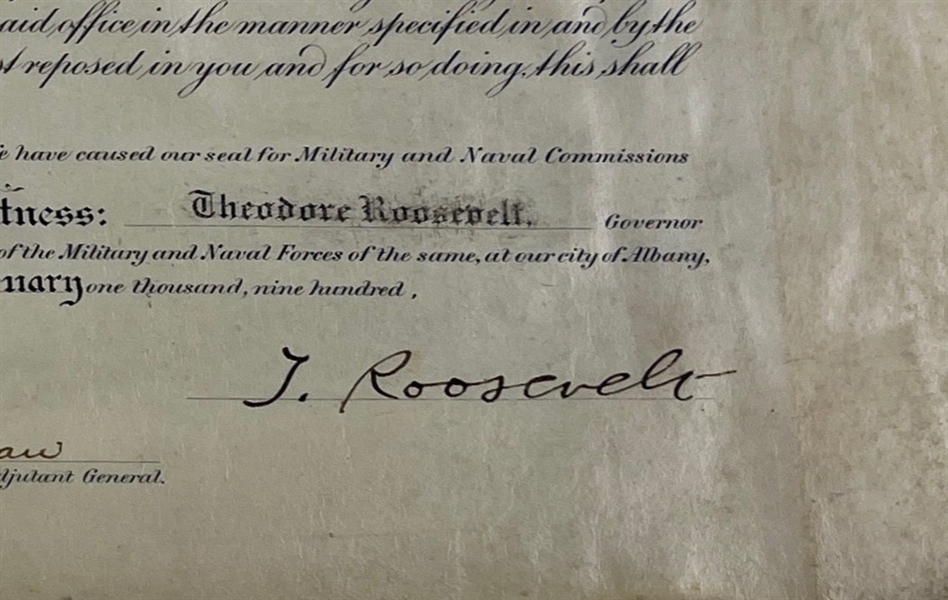 aid office in the manner specified in and by the
t reposed in you and for so doing, this shall
e have caused our seal for Military and Naval Commissions
tness: Theodore Roosevelt, Governor
of the Military and Naval Forces of the same, at our city of Albany,
nuary one thousand, nine hundred,
T. Roosevelt
aw
djutant General.